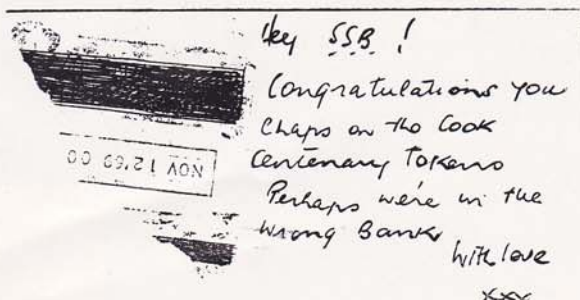 Hey SSB!
Congratulations you
Chaps on tho Cook
Centenary Tokens
Perhaps we're in the
Wrong Bank
With love
xxx
NOV 12'69 00